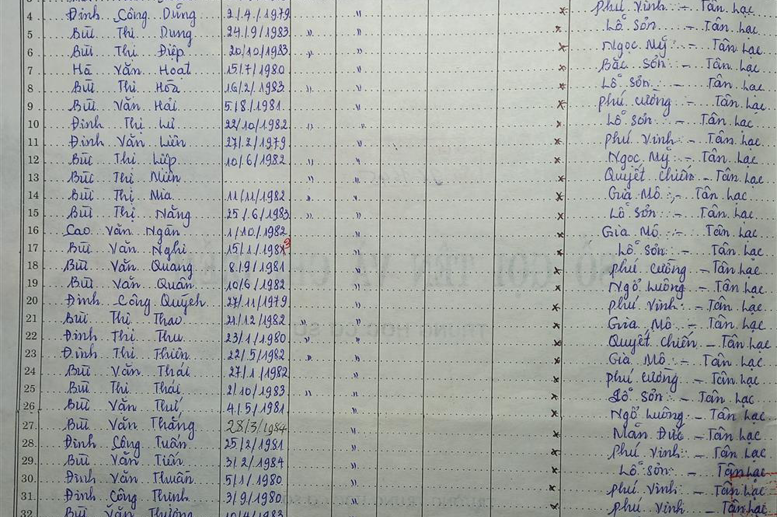 4 Đinh Công Dũng 2/4/1979 " × Phú Vinh - Tân Lạc
5 Bùi Thị Dung 24/9/1983 " " × Lỗ Sơn - Tân Lạc
6 Bùi Thị Điệp 20/10/1983 " " × Ngọc Mỹ - Tân Lạc
7 Hà Văn Hoạt 15/7/1980 " × Bắc Sơn - Tân Lạc
8 Bùi Thị Hoà 16/2/1983 " " × Lỗ Sơn - Tân Lạc
9 Bùi Văn Hải 5/8/1981 " × Phú Cường - Tân Lạc
10 Đinh Thị 22/10/1982 " " × Lỗ Sơn - Tân Lạc
11 Đinh Văn Liên 27/2/1979 " × Phú Vinh - Tân Lạc
12 Bùi Thị 10/6/1982 " " × Ngọc Mỹ - Tân Lạc
13 Bùi Thị Miên " " × Quyết Chiến - Tân Lạc
14 Bùi Thị Mia 11/11/1982 " " × Gia Mô - Tân Lạc
15 Bùi Thị Nằng 25/6/1983 " " × Lỗ Sơn - Tân Lạc
16 Cao Văn Ngân 1/10/1982 " × Gia Mô - Tân Lạc
17 Bùi Văn Nghi 15/1/1983 " × Lỗ Sơn - Tân Lạc
18 Bùi Văn Quang 8/9/1981 " × Phú Cường - Tân Lạc
19 Bùi Văn Quân 10/6/1982 " × Ngổ Luông - Tân Lạc
20 Đinh Công Quỳnh 27/11/1979 " × Phú Vinh - Tân Lạc
21 Bùi Thị Thao 21/12/1982 " " × Gia Mô - Tân Lạc
22 Đinh Thị Thu 23/1/1980 " " × Quyết Chiến - Tân Lạc
23 Đinh Thị Thiên 22/5/1982 " " × Gia Mô - Tân Lạc
24 Bùi Văn Thái 27/1/1982 " × Phú Cường - Tân Lạc
25 Bùi Thị Thái 2/10/1983 " " × Lỗ Sơn - Tân Lạc
26 Bùi Văn 4/5/1981 " × Ngổ Luông - Tân Lạc
27 Bùi Văn Thắng 28/3/1984 " × Mãn Đức - Tân Lạc
28 Đinh Công Tuấn 25/2/1981 " × Phú Vinh - Tân Lạc
29 Bùi Văn Tiến 3/2/1984 " × Lỗ Sơn - Tân Lạc
30 Đinh Văn Thuân 5/1/1980 " × Phú Vinh - Tân Lạc
31 Đinh Công Thinh 3/9/1980 " × Phú Vinh - Tân Lạc
32 Bùi Văn Thường 10/4/1983